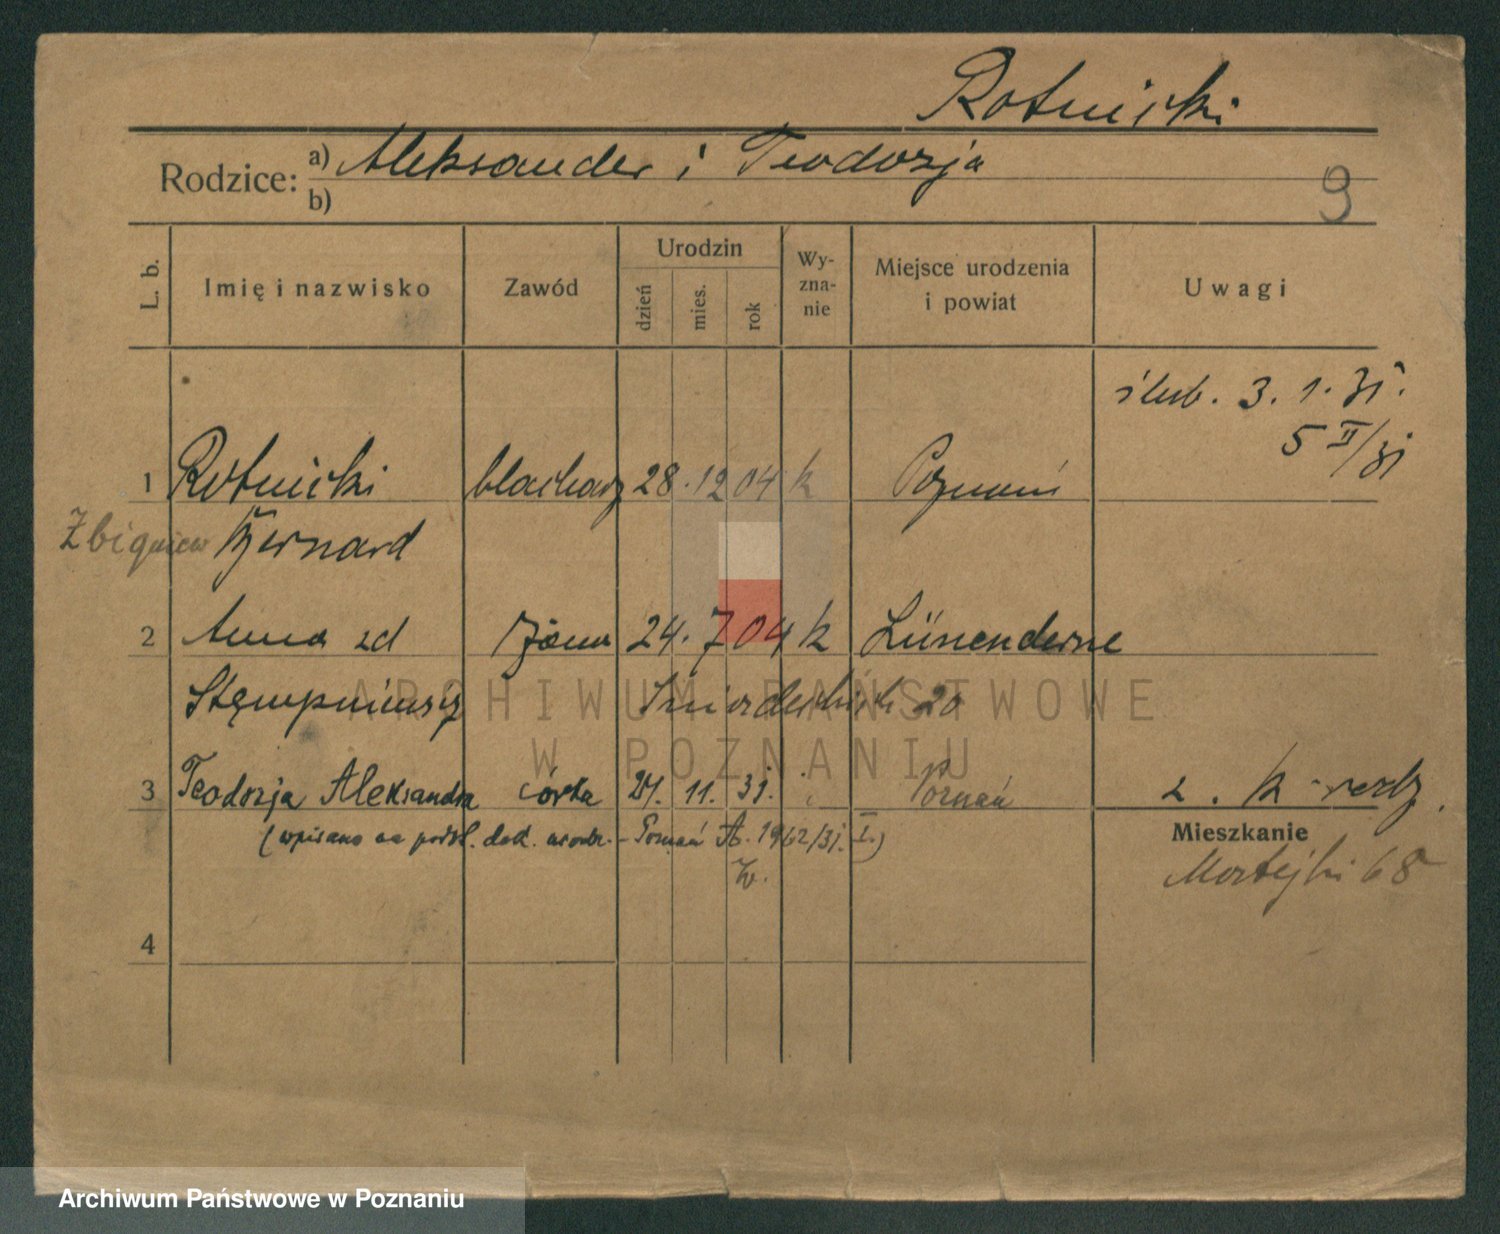 Rotnicki
Rodzice: a) Aleksander i Teodozja
b)
9
L. b. Imię i nazwisko Zawód Urodzin dzień mies. rok Wy-zna-nie Miejsce urodzenia i powiat Uwagi
ślub. 3. 1. 31.
5 II/31
1 Rotnicki blacharz 28. 12 04 k Poznań
Zbigniew Bernard
2 Anna zd żona 24. 7 04 k Lünenderne
Stempniewicz Śniadeckich 20
3 Teodozja Aleksandra córka 27. 11. 31. Poznań
z. k
(wpisano na podst. dok. urodz. - Poznań 1962/31. I.)
Mieszkanie
68
4
ARCHIWUM PAŃSTWOWE
W POZNANIU
Archiwum Państwowe w Poznaniu